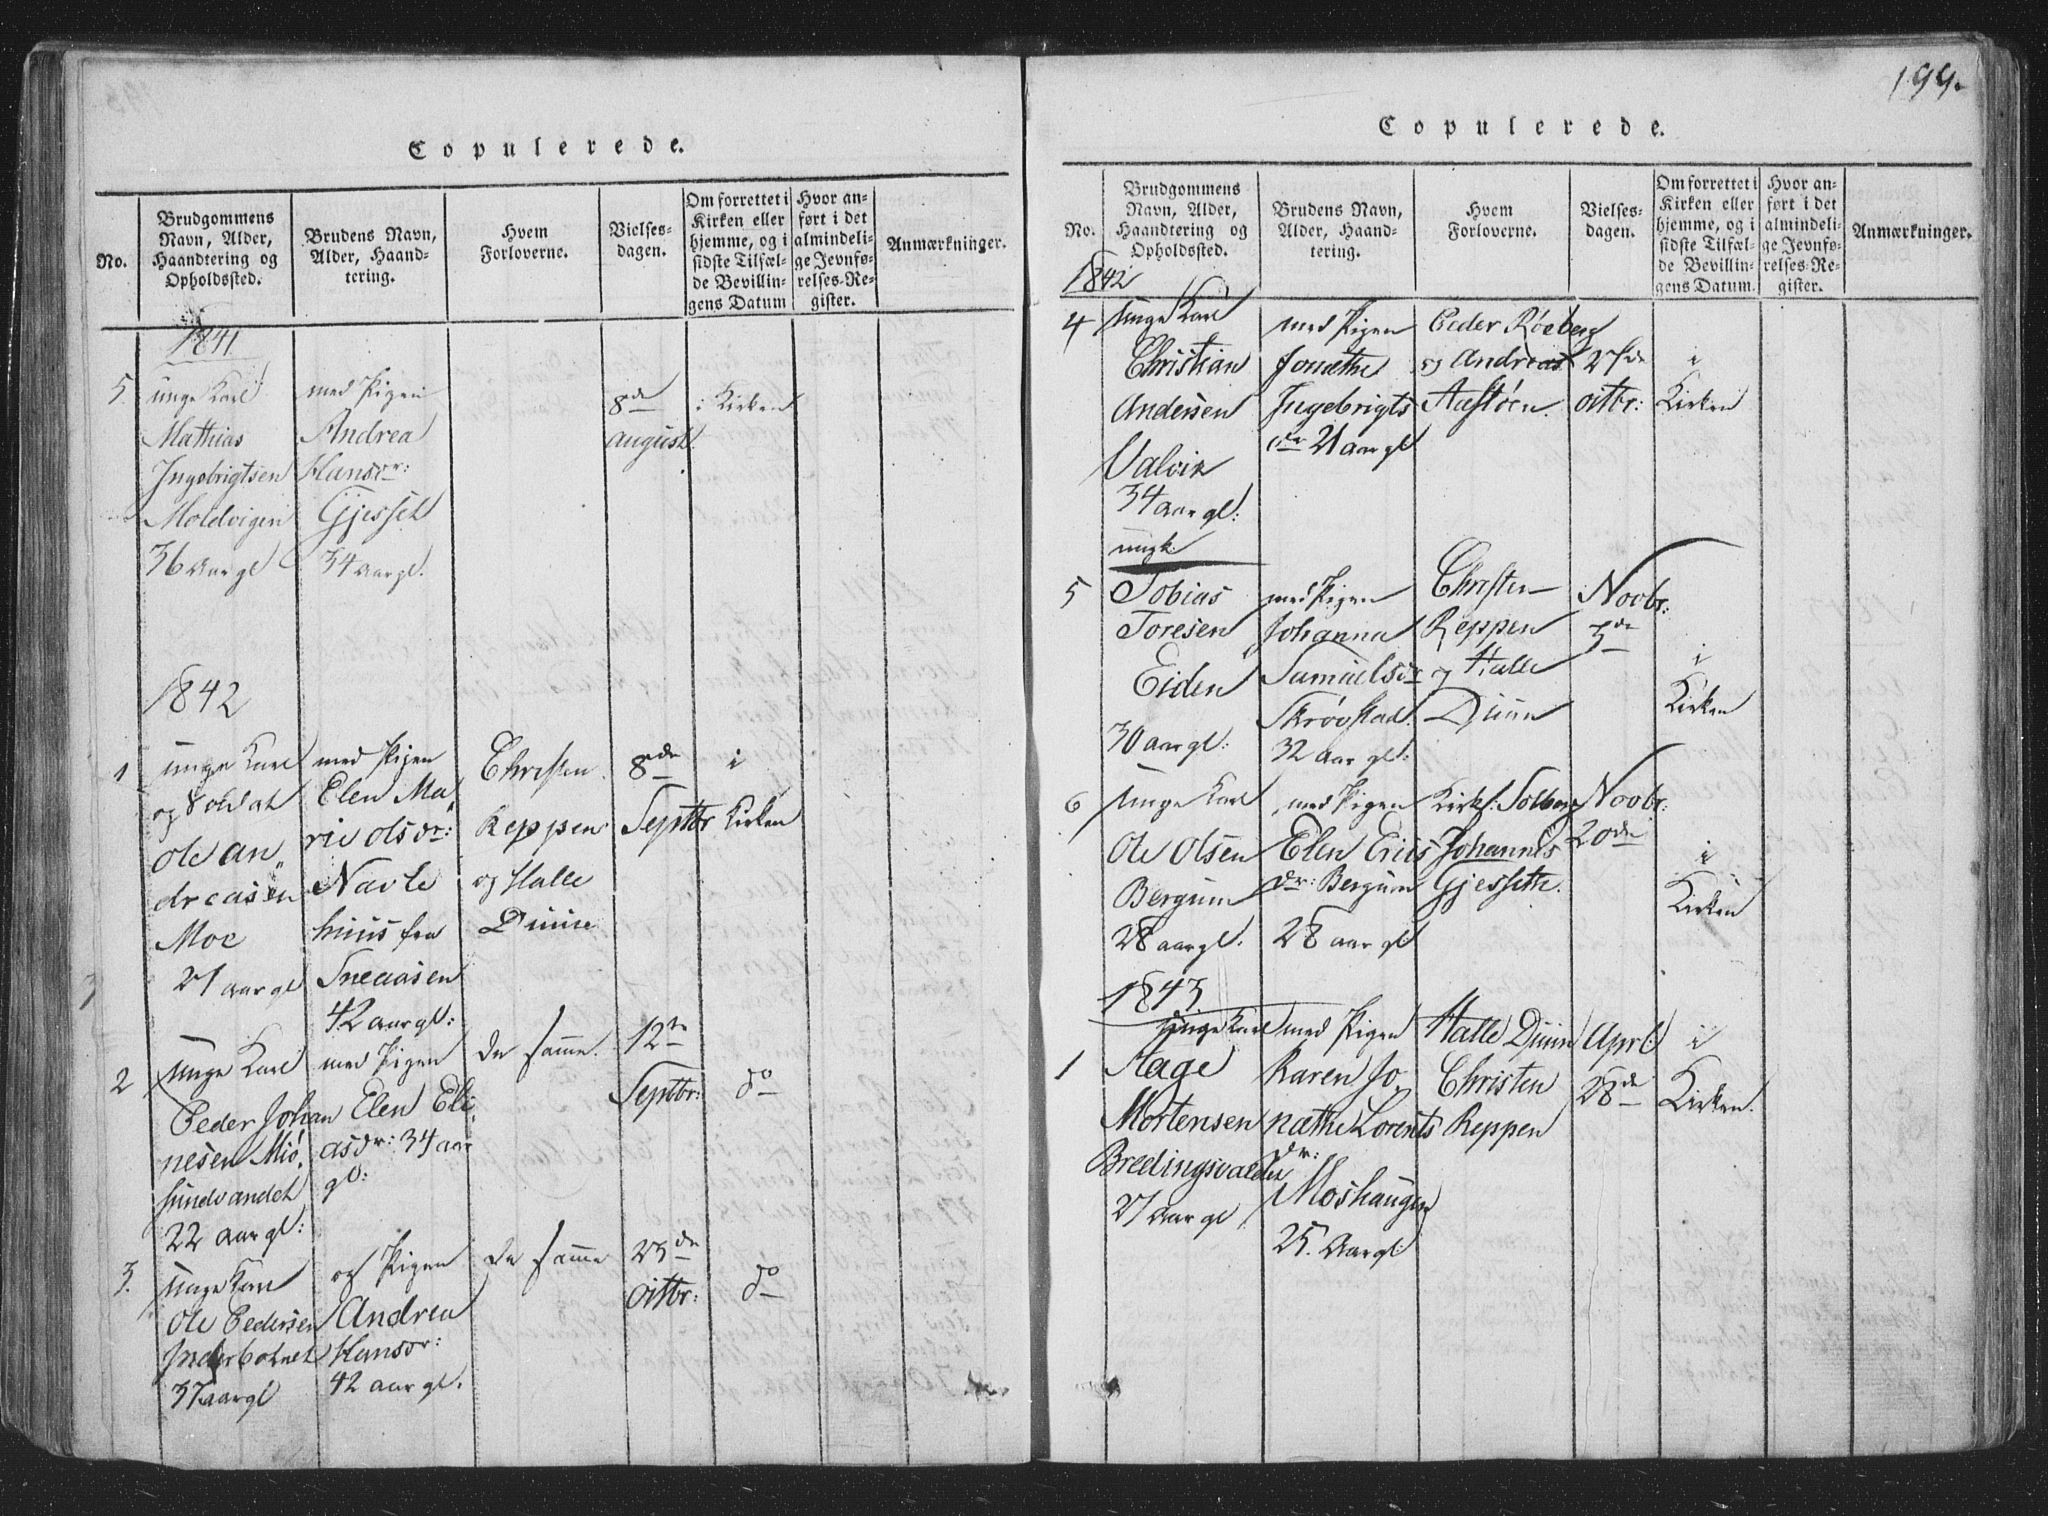 Copulerede.
No.
Brudgommens
Navn, Alder,
Haandtering og
Opholdssted.
Brudens Navn,
Alder, Haand-
tering.
Hvem
Forloverne.
Vielses-
dagen.
Om forrettet i
Kirken eller
hjemme, og i
sidste Tilfæl-
de Bevillin-
gens Datum
Hvor an-
ført i det
almindeli-
ge Jevnfø-
relses-Re-
gister.
Anmærkninger.
1841
5
unge Karl
Mathias
Ingebrigtsen
Moldvigen
36 Aar gl
med Pigen
Andrea
Hansdr:
Gjesset
34 Aar gl.
8de
august
i Kirken
1842
1
unge Karl
og Soldat
Ole an„
dreasen
Moe
27 aar gl
med Pigen
Elen Ma„
rie Olsdr:
Navle
huus fra
Sneaasen
42 aar gl:
Christen
Reppen
og Halle
Duun
8de
Septbr
i
Kirken
2
unge Karl
Peder Johan
nesen Miö,
sundvandet
22 aar gl:
med Pigen
Elen Eli,
asdr: 34 aar
gl:
de samme
12te
Septbr:
do
3.
unge Karl
Ole Pedersen
Inderbotnet
37 aar gl
og Pigen
Andrea
Hansdr:
42 aar gl.
de samme
25de
Octbr:
do
199.
Copulerede.
No.
Brudgommens
Navn, Alder,
Haandtering og
Opholdssted.
Brudens Navn,
Alder, Haand-
tering.
Hvem
Forloverne.
Vielses-
dagen.
Om forrettet i
Kirken eller
hjemme, og i
sidste Tilfæl-
de Bevillin-
gens Datum.
Hvor an-
ført i det
almindeli-
ge Jevnfø-
relses-Re-
gister.
Anmærkninger.
1842
4
unge Karl
Christian
Andersen
Valvik
34 aar gl:
med Pigen
Jonæthe
Ingebrigts
dr 21 aar gl
Peder Röeberg
og Andreas
Aastöen
27de
Octbr:
i
Kirken
5
ungk:
Tobias
Toresen
Eiden
30 aar gl:
med Pigen
Johanna
Samuelsdr
Skrövstad.
32 aar gl:
Christen
Reppen
og Halle
Duun
Novbr:
3de
i
Kirken
6
unge Karl
Ole Olsen
Bergum
28 aar gl.
med Pigen
Elen Erics
dr: Bergum
28 aar gl
Kirks: Solberg
Johannes
Gjesseth.
Novbr:
20de
i
Kirken
1843.
1
unge Karl
Aage
Mortensen
Bredingsvaldet
27 Aar gl
med Pigen
Karen Jo„
næthe Lorents
dr:
Moshaugen
25. Aar gl:
Halle Duun
Christen
Reppen
Aprl:
28de
i
Kirken.